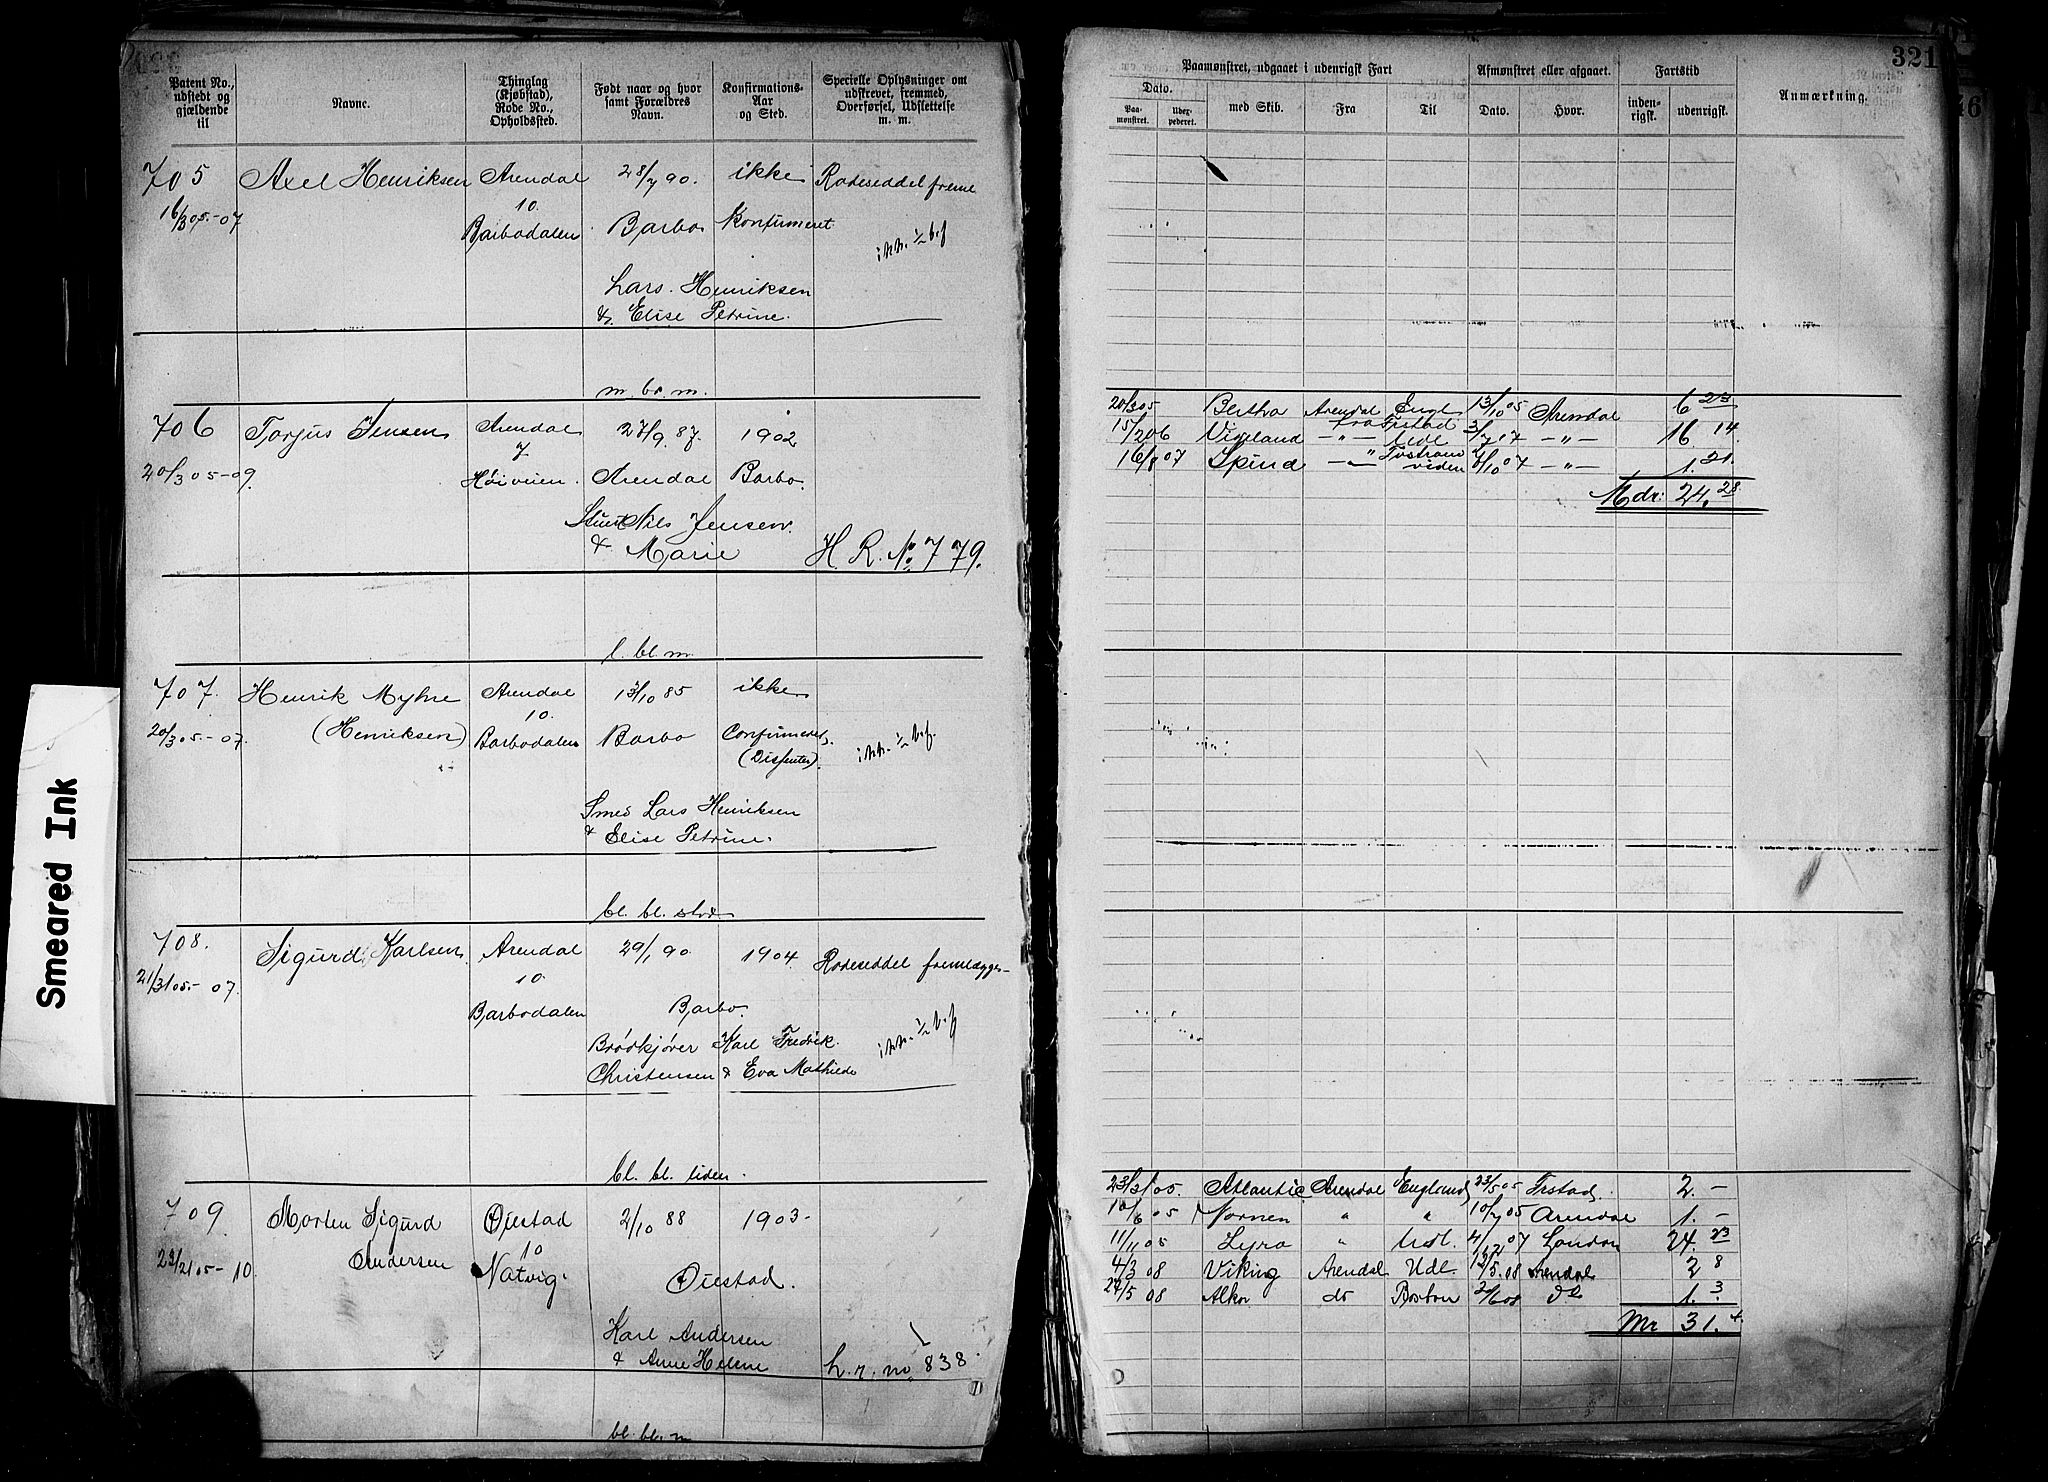 321
46
Smeared Ink
Patent No., udstedt og gjældende til
Navne.
Thinglag (Kjøbstad), Rode No., Opholdssted.
Født naar og hvor samt Forældres Navn.
Konfirmations- Aar og Sted.
Specielle Oplysninger om udskrevet, fremmed, Overførsel, Udslettelse m. m.
Paamønstret, udgaaet i udenrigsk Fart
Afmønstret eller afgaaet.
Fartstid
Anmærkning.
Dato.
Paa- mønstret.
med Skib.
Fra
Til
Dato.
Hvor.
inden- rigsk.
udenrigsk.
705 Axel Henriksen Arendal 28/7 90. ikke Rodeseddel frem
16/3 05.-07 10. Barbodalen Barbo konfirmeret
Lars. Henriksen
& Elise Petrine.
m. br. m.
706 Torjus Jensen Arendal 27/9. 87. 1902
20/3 05-09. 7 Høiveien. Arendal Barbo.
Nils Jensen
& Marie H. R. No. 779.
20/3 05 Bertha Arendal Engl 13/10 05 Arendal 6 23
15/2 06 Vigeland -"- Udl 3/7 17 -"- 16 14
16/8 07 Spind -"- 10 07 -"- 1. 21.
Mdr: 24. 28
l. bl. m
707. Henrik Myhre Arendal 13/10 85 ikke
20/3 05.-07. (Henriksen) 10. Barbodalen Barbo Confirmeret. (Dissenter).
Smed Lars Henriksen
& Elise Petrine.
bl. bl.
708. Sigurd Karlsen Arendal 29/1 90 1904. Rodeseddel fremlægges-
21/3 05.-07. 10 Barbodalen Barbo.
Brødkjører Karl Fredrik
Christensen & Eva Mathilde
bl. bl. liden.
709. Morten Sigurd Øiestad 2/10 88 1903.
Andersen 10 Natvig. Øiestad.
05-10.
Karl Andersen
& Anne Helene h. r. no 838.
23/3 05. Atlantic Arendal England 23/5 05 Frstad. 2. -
10/6 05 Nornen " " 10/7 05 Arendal 1. -
11/11 05 Lyra " Udl. 4/12 07 London 24. 23
4/3 08 Viking Arendal Udl. 12/5. 08 Arendal 2 8
27/5 08 Alkor do Boston 08 do 1. 3.
Mr 31. 4
bl. bl. m